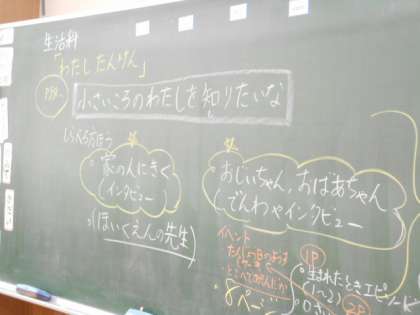 生活科
「わたしたんけん」
P98~
小さいころのわたしを知りたいな
しらべる方ほう
家の人にきく
(インタビュー)
(ほいくえんの先生)
おじいちゃん、おばあちゃん
(でんわやインタビュー
イベント
たんじょう日
1P
生まれたときエピソード
(1~2)
2P
8ページ